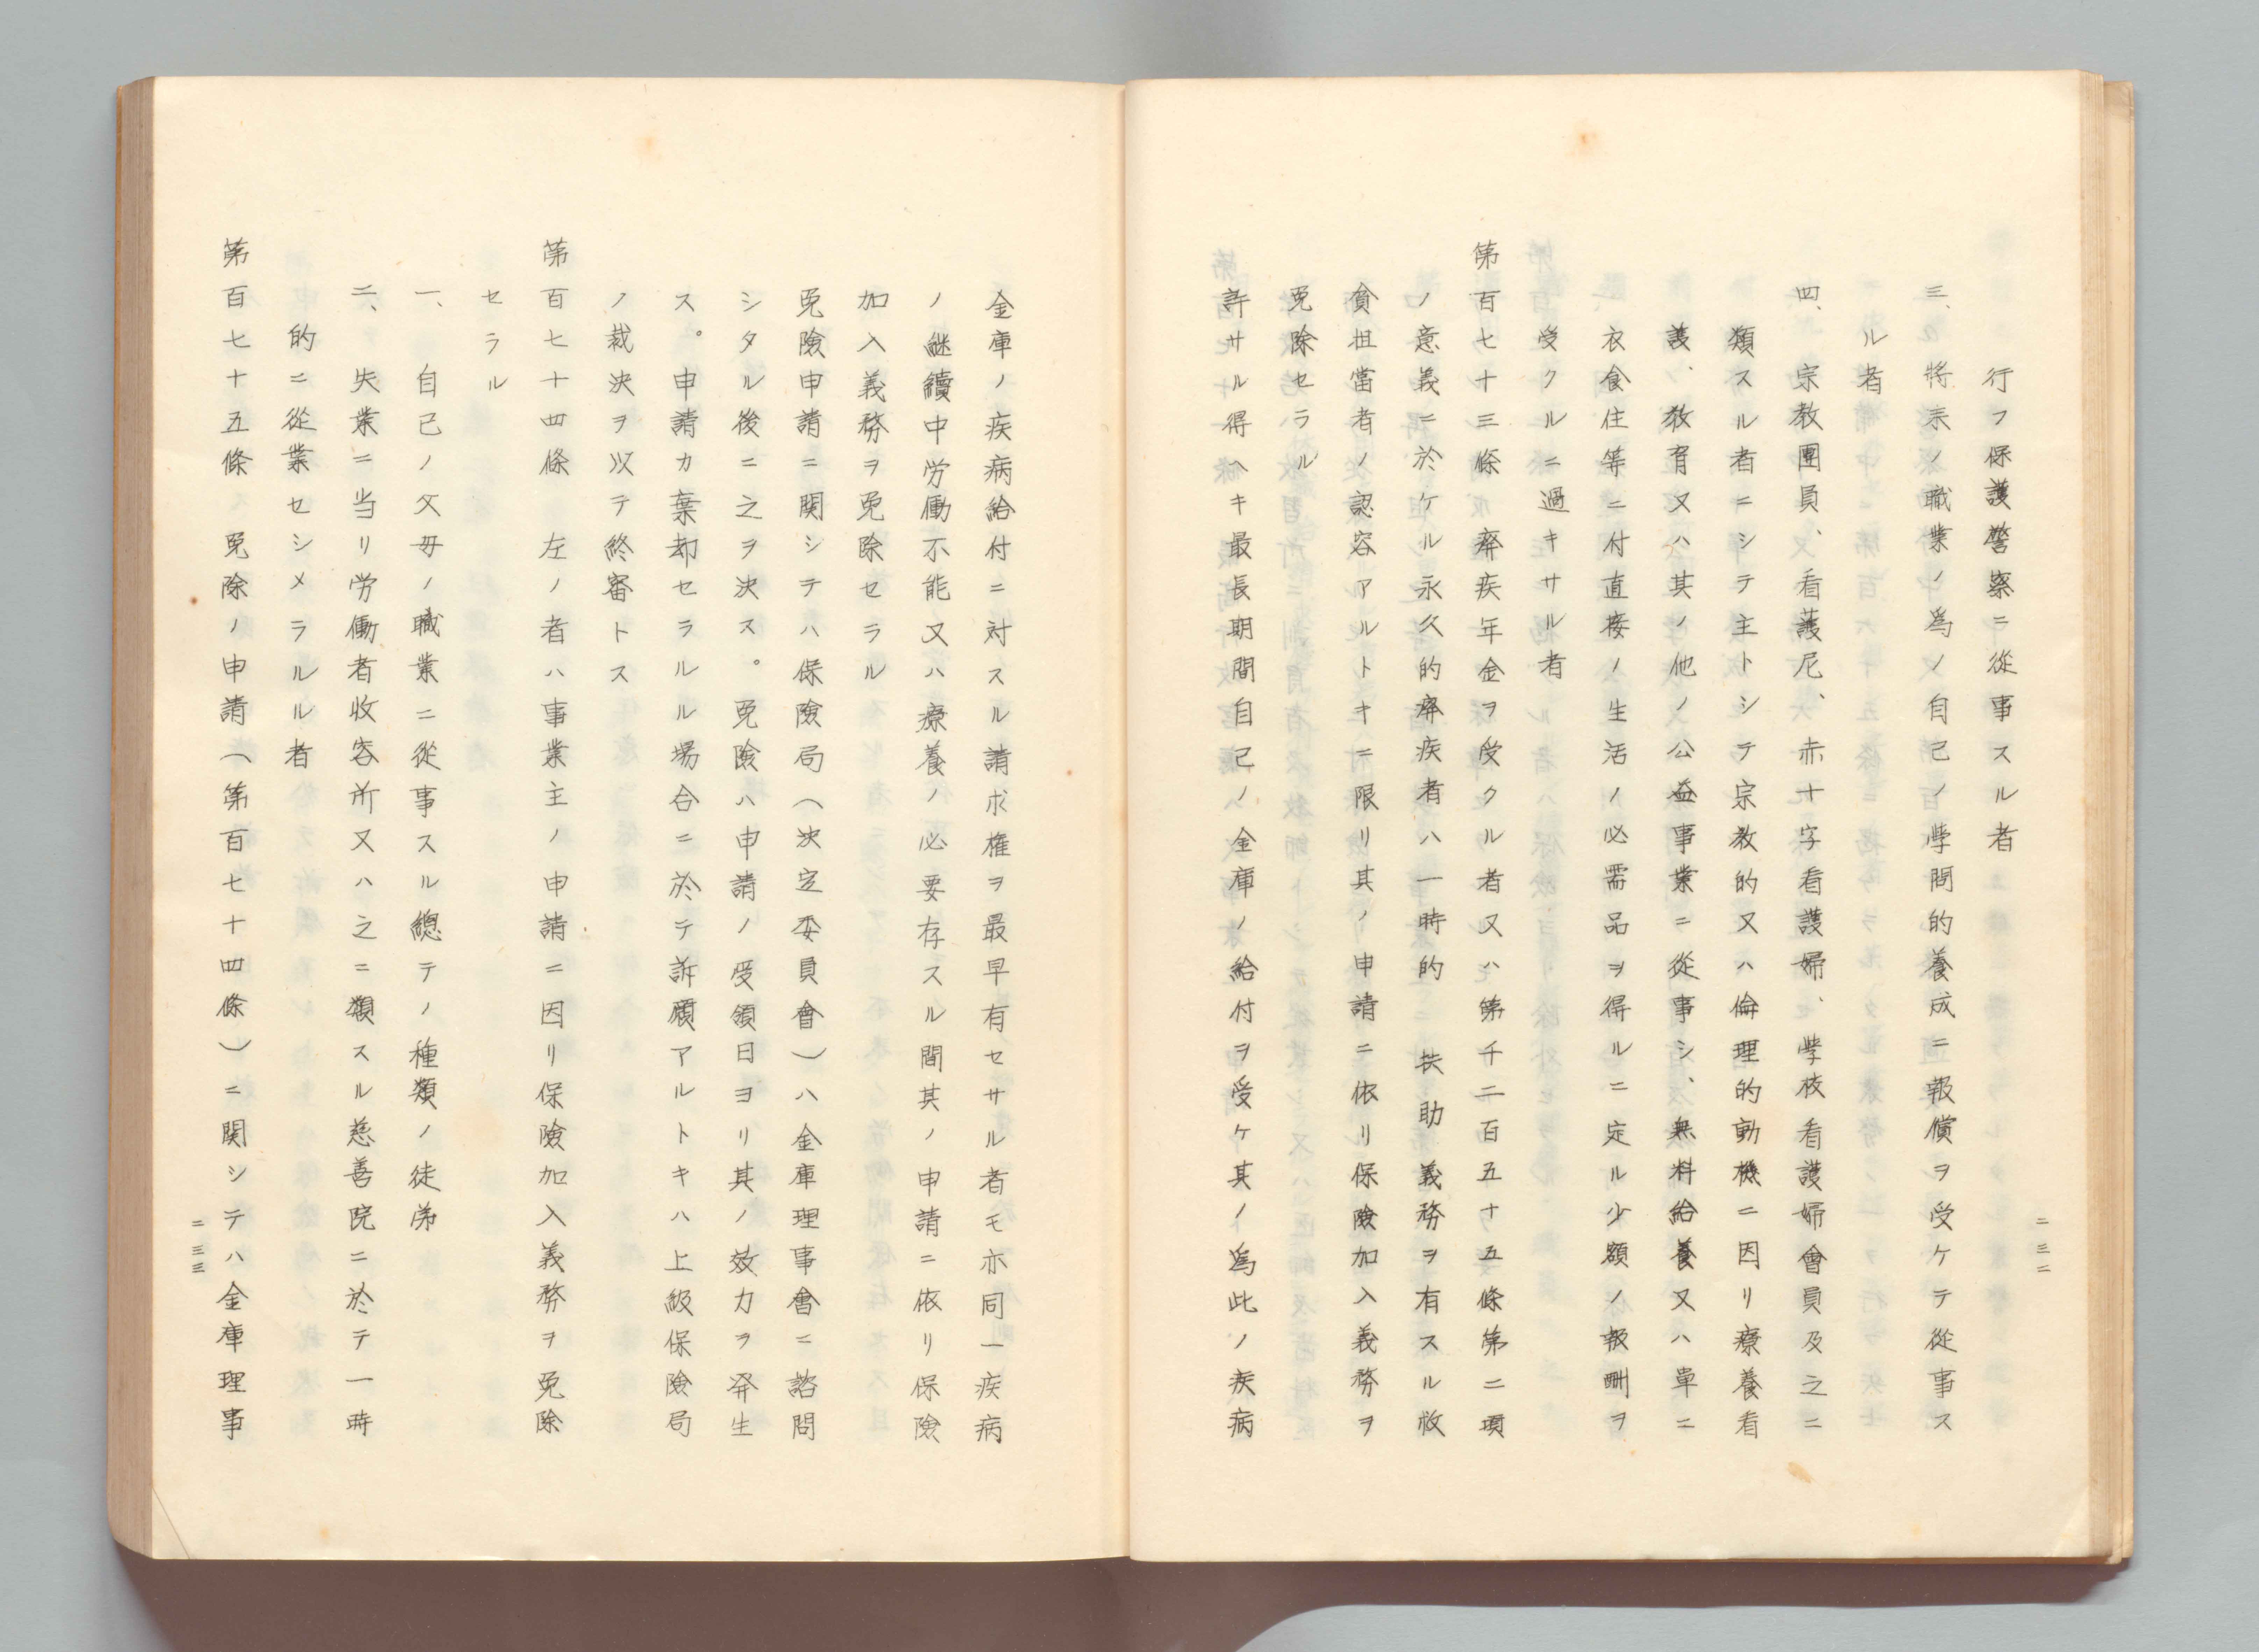 行フ保護警察ニ從事スル者
三、將來ノ職業ノ爲ノ自己ノ學問的養成ニ報償ヲ受ケテ從事ス
ル者
四、宗教團員、看護尼、赤十字看護婦、學校看護婦會員及之ニ
類スル者ニシテ主トシテ宗教的又ハ倫理的動機ニ因リ療養看
護、教育又ハ其ノ他ノ公益事業ニ從事シ、無料給養又ハ單ニ
衣食住等ニ付直接ノ生活ノ必需品ヲ得ルニ定ル少額ノ報酬ヲ
受クルニ過キサル者
第百七十三條 癈疾年金ヲ受クル者又ハ第千二百五十五條第二項
ノ意義ニ於ケル永久的癈疾者ハ一時的扶助義務ヲ有スル救
貧担當者ノ認容アルトキニ限リ其ノ申請ニ依リ保險加入義務ヲ
免除セラル
許サル得ヘキ最長期間自己ノ金庫ノ給付ヲ受ケ其ノ爲此ノ疾病
二三二
金庫ノ疾病給付ニ対スル請求權ヲ最早有セサル者モ亦同一疾病
ノ継續中労働不能又ハ療養ノ必要存スル間其ノ申請ニ依リ保險
加入義務ヲ免除セラル
免險申請ニ関シテハ保險局(決定委員會)ハ金庫理事會ニ諮問
シタル後ニ之ヲ決ス。免險ハ申請ノ受領日ヨリ其ノ效力ヲ発生
ス。申請カ棄却セラルル場合ニ於テ訴願アルトキハ上級保險局
ノ裁決ヲ以テ終審トス
第百七十四條 左ノ者ハ事業主ノ申請ニ因リ保險加入義務ヲ免除
セラル
一、自己ノ父母ノ職業ニ從事スル總テノ種類ノ徒弟
二、失業ニ当リ労働者收容所又ハ之ニ類スル慈善院ニ於テ一時
的ニ從業セシメラルル者
第百七十五條 免除ノ申請(第百七十四條)ニ関シテハ金庫理事
二三三